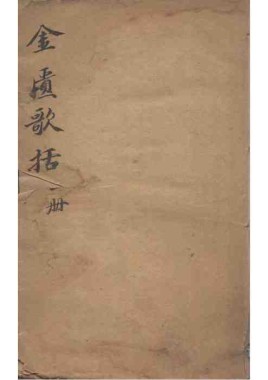 金匱歌括一册